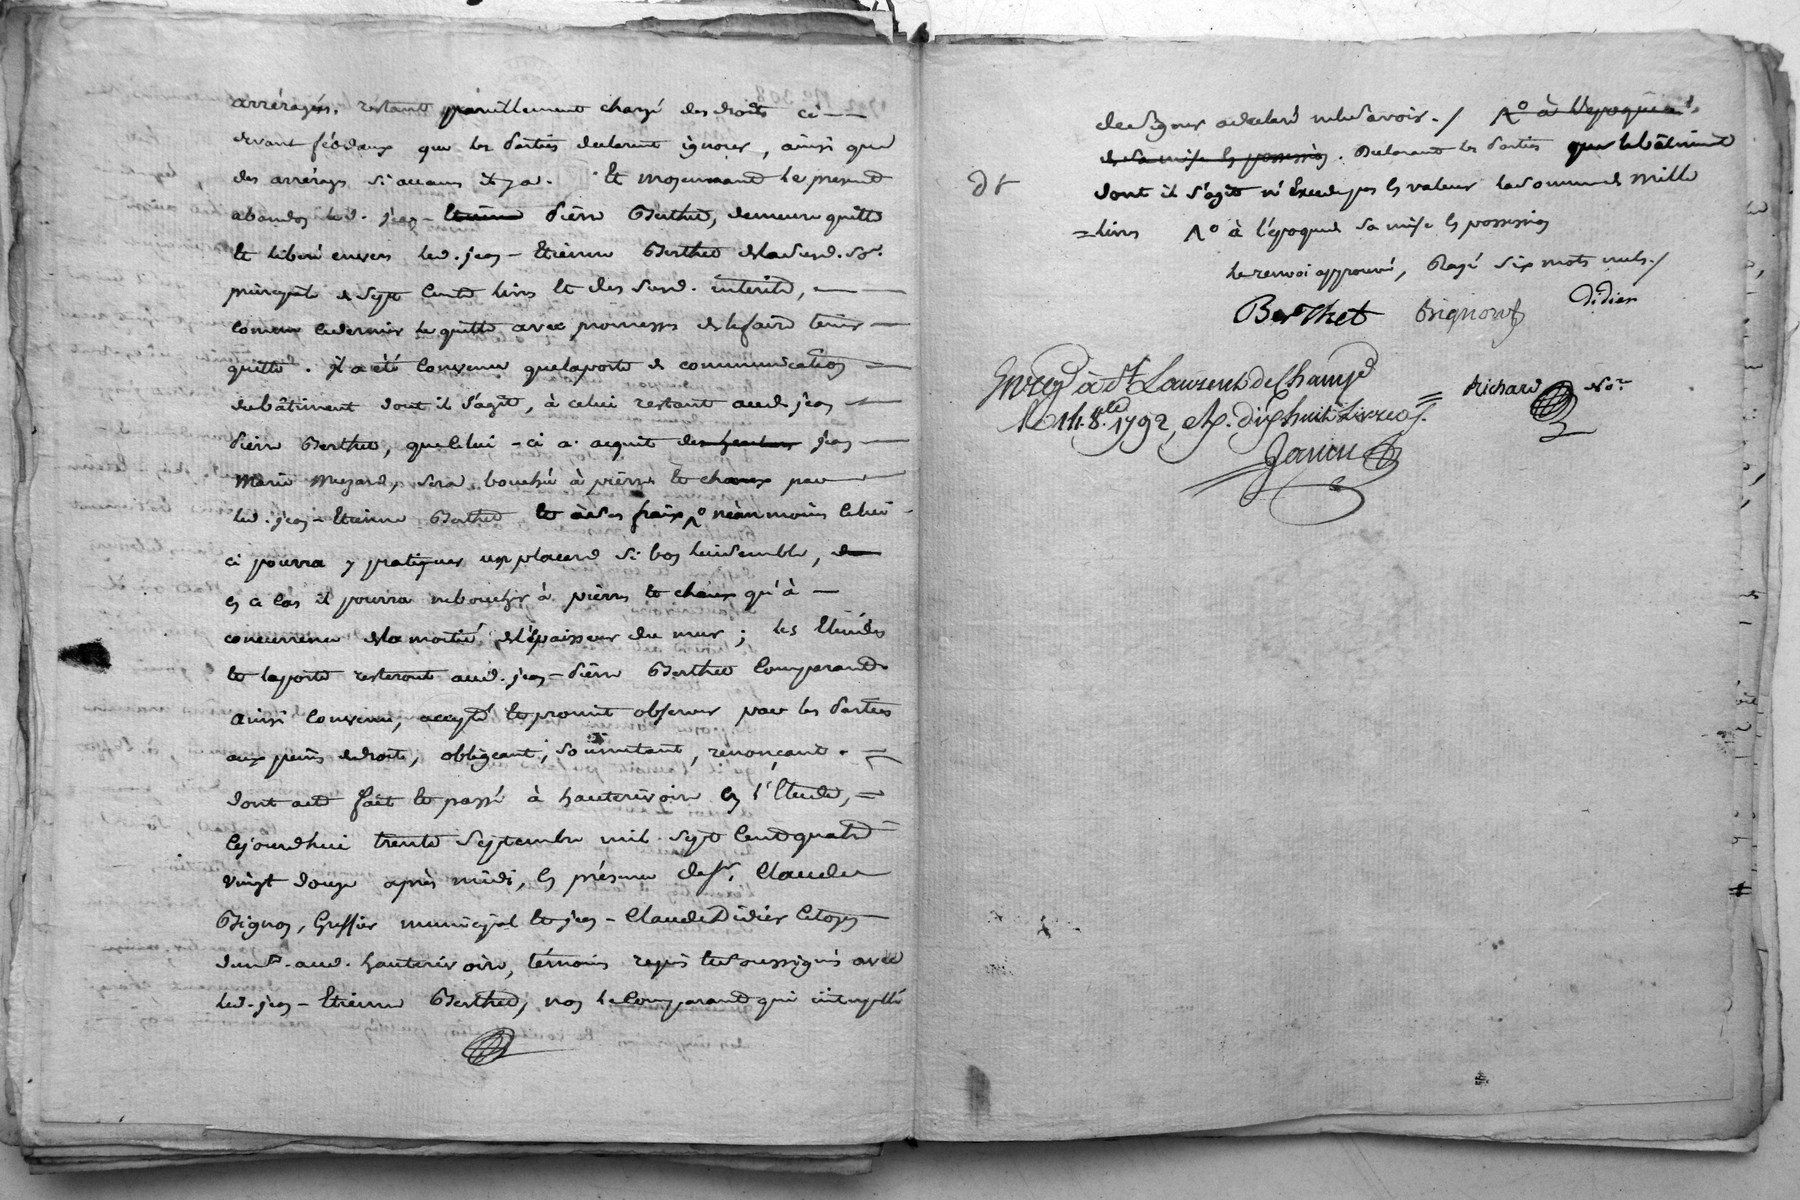 arrérages, restant pareillement chargé des droits ci --
devant féodaux que les parties declarent ignorer, ainsi que
des arrérages si aucuns il y a. Et moyennant le present
abandon led. jean - Etienne pierre Berthet, demeure quitte
et liberé envers led. jean - Etienne Berthet de lad. so.
principale de sept cents livres et des susd. interets,
comme ce dernier le quitte avec promesse de le faire tenir
quitte. il a été convenu que la porte de communication
du bâtiment dont il s'agit, à celui restant aud. jean
pierre Berthet, que celui-ci a acquit des jean
Marie Muzard, sera bouchée à pierres et chaux par
led. jean - Etienne Berthet et à ses fraix, neanmoins celui
ci pourra y pratiquer un placard si bon lui semble, de
en ce cas il pourra reboucher à pierres et chaux qu'à -
concurrence de la moitié de l'épaisseur du mur ; les
et la porte resteront aud. jean - pierre Berthet comparand
ainsi convenu, accepté et promit observer par les parties
aux peines de droit, obligeant, soumetant, renonçant.
dont acte fait et passé à hauterivoire en l'Etude,
cejourd'hui trente septembre mil sept cent quatre
vingt douze après midi, en présence de sr. Claude
Bignon, Greffier municipal et jean - Claude Didier citoyen
aud. hauterivoire, témoins requis et soussignés avec
led. jean - Etienne Berthet, non le comparand qui interpellé
de signer a declaré ne le savoir. / à l'époque de
de sa mise en possession. Declarant les parties que le bâtiment
dont il s'agit n'excede pas en valeur la somme de mille
= livres à l'époque de sa mise en possession
le renvoi approuvé, Rayé six mots nuls. /
Berthet Bignon Didier
Enreg. à St. Laurent de Champ.
Le 11. 8.bre 1792, R. dix huit livres
Richard No.re
Janin